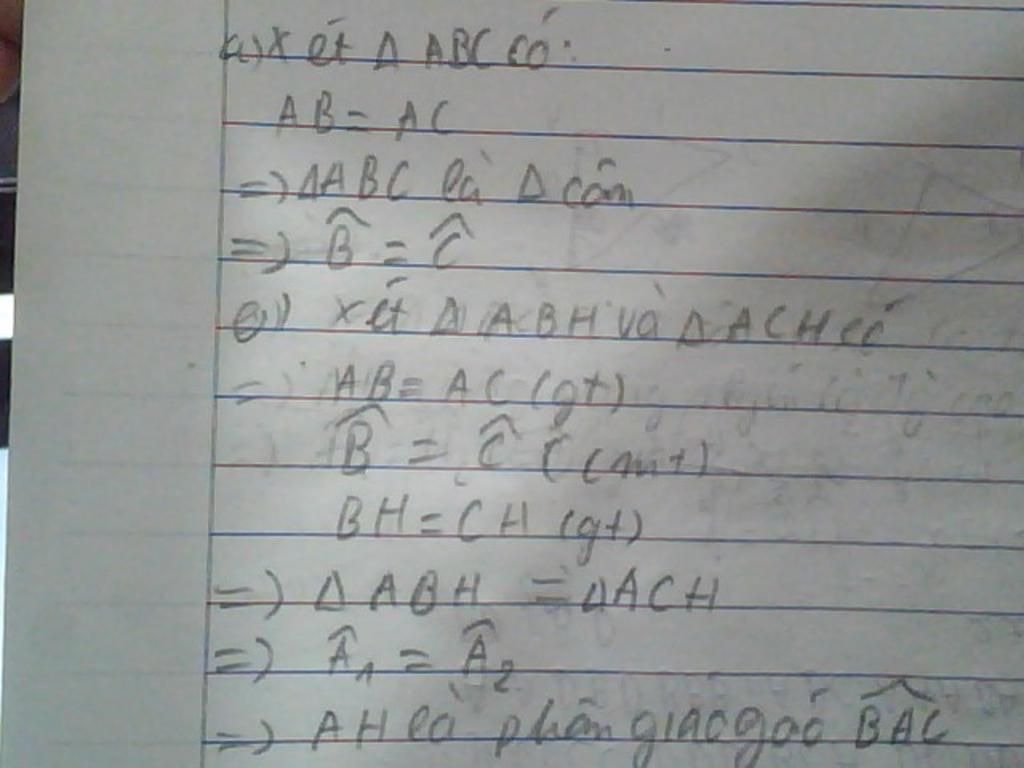 a) Xét Δ ABC có:
AB = AC
=> ΔABC là Δ cân
=> B̂ = Ĉ
Xét Δ ABH và Δ ACH có
= AB = AC (gt)
B̂ = Ĉ (cmt)
BH = CH (gt)
=> Δ ABH = ΔACH
=> Â₁ = Â₂
=> AH là phân giác góc BAC